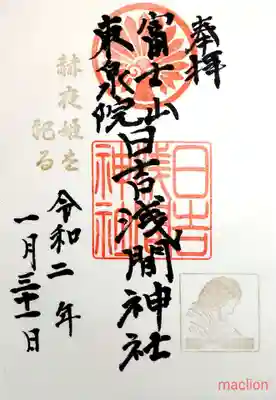 奉拝
富士山日吉浅間神社
東泉院
日吉
浅間
神社
赫夜姫を
祀る
令和二年
一月三十一日
maclion